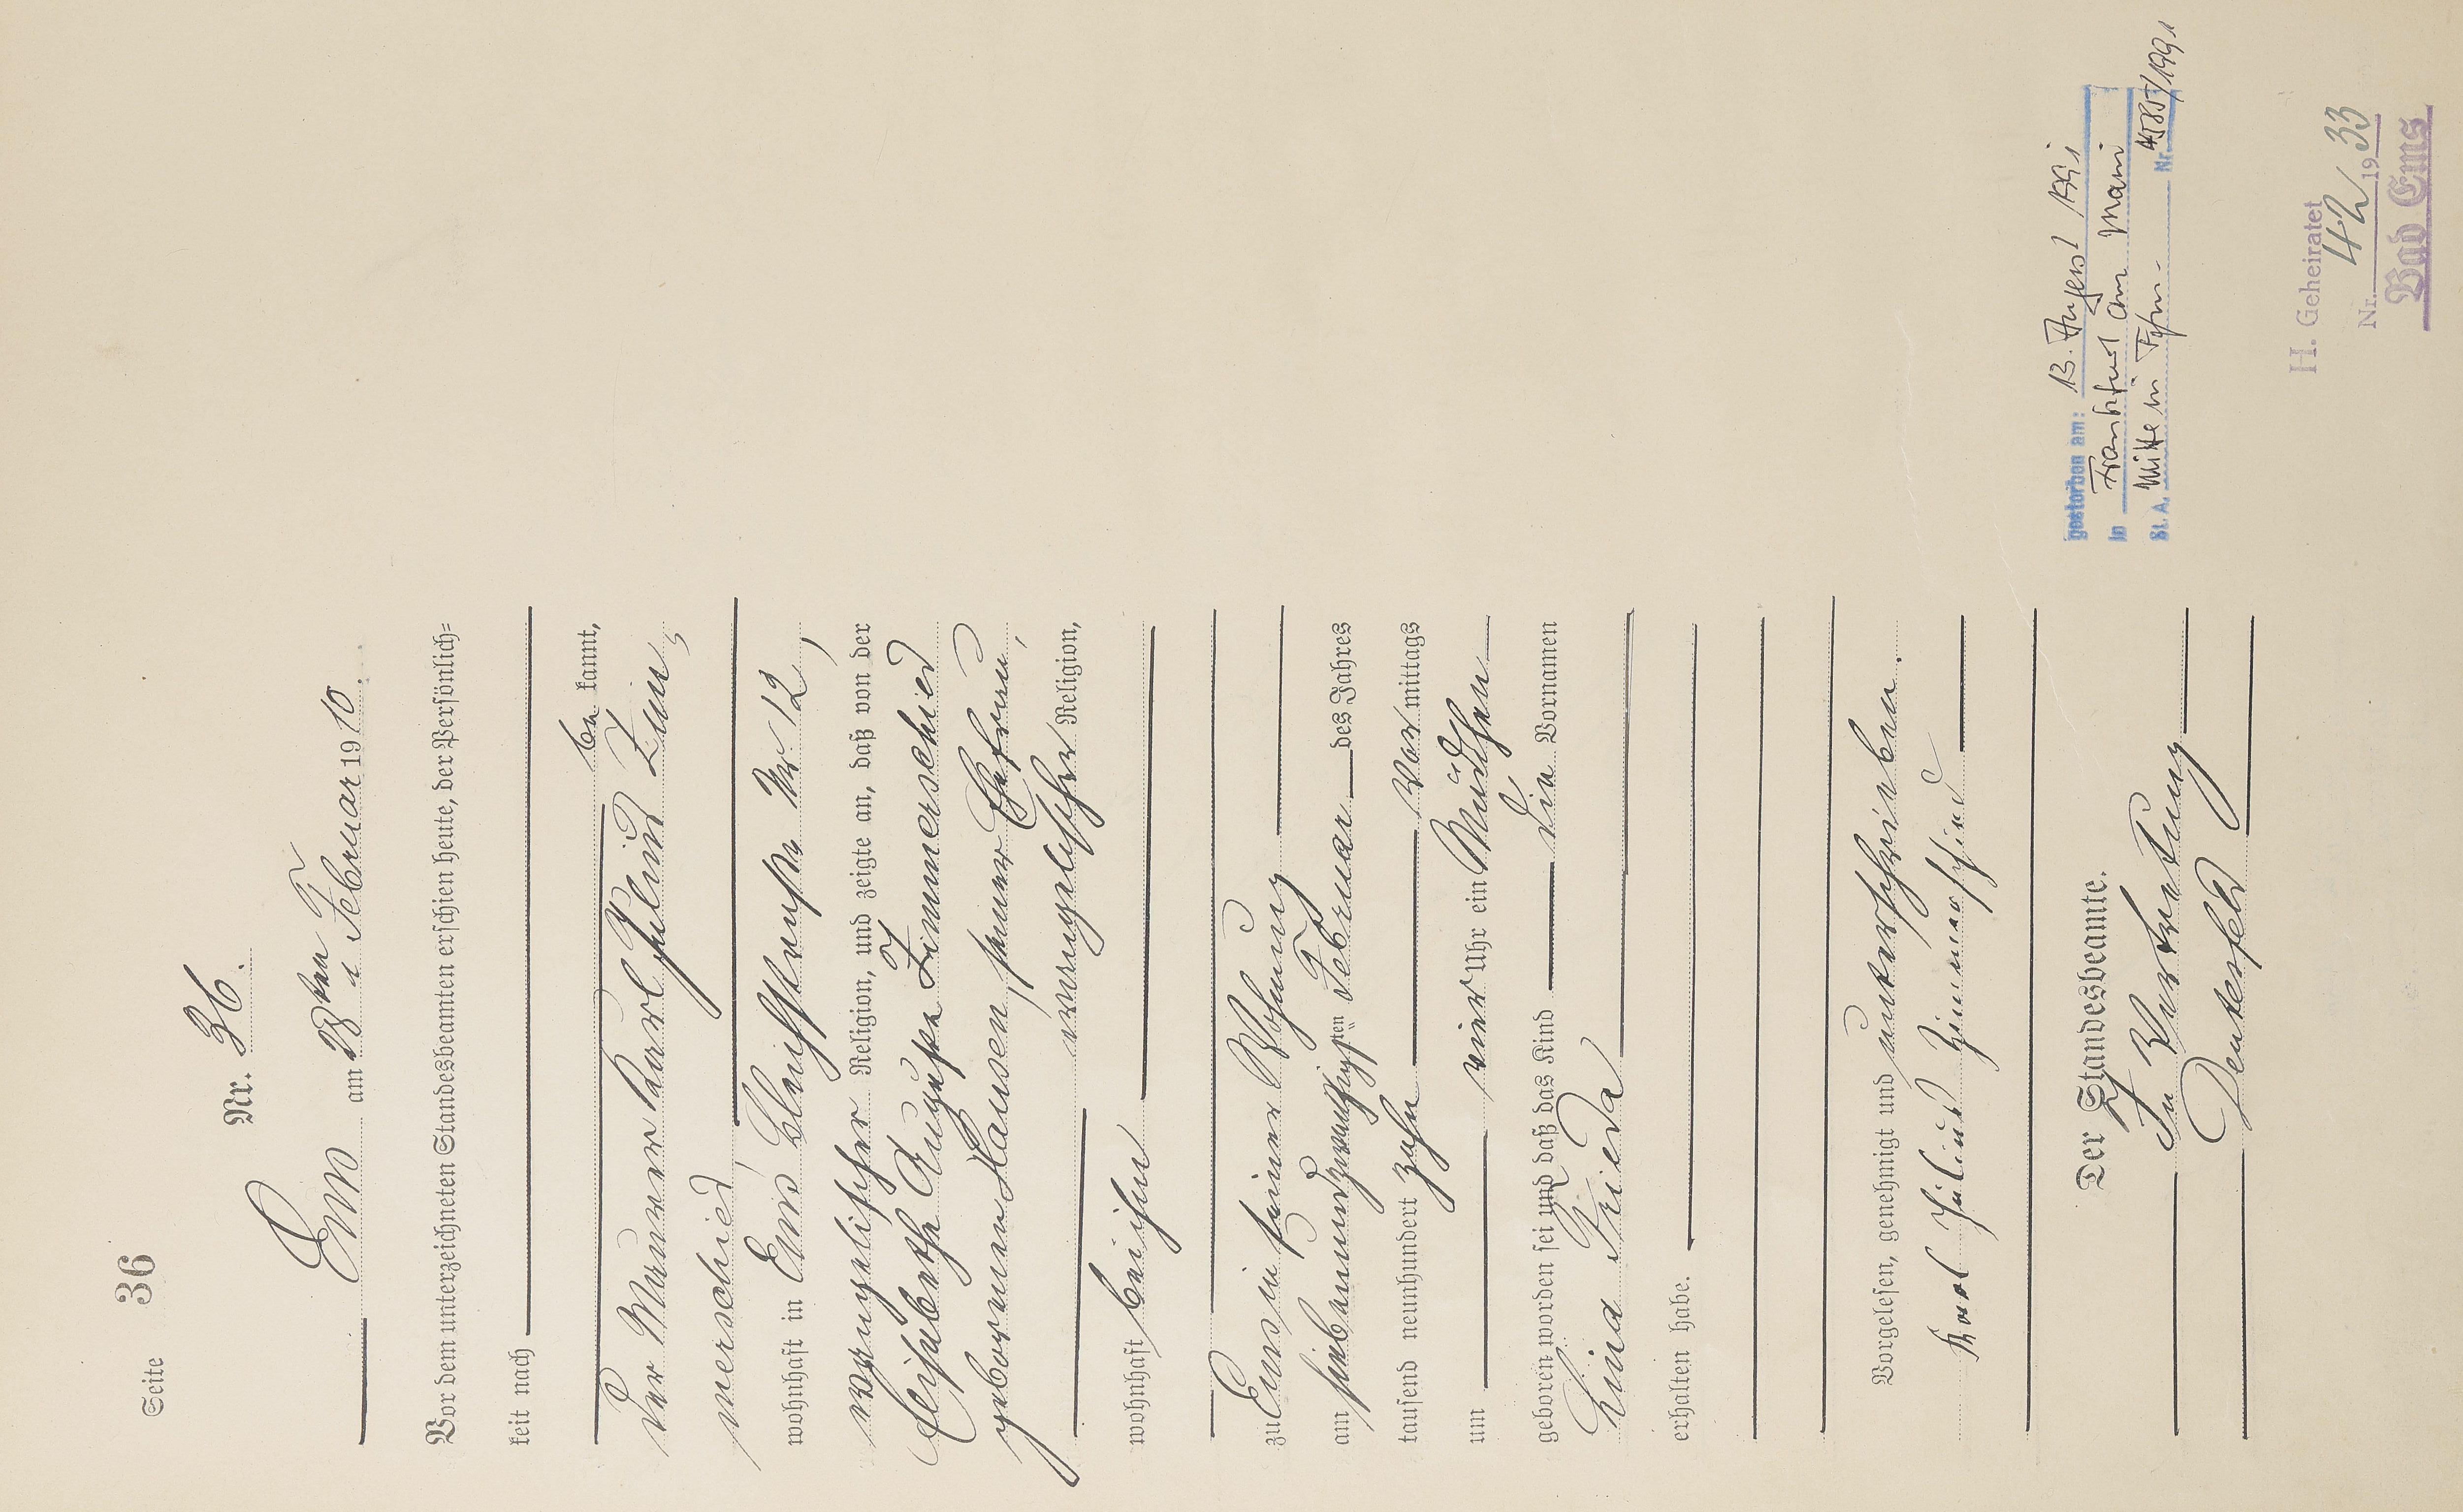 Seite 36
Nr. 36.
Ems am 28ten Februar 1910.
Vor dem unterzeichneten Standesbeamten erschien heute, der Persönlich=
keit nach
be kannt,
der Maurer Karl Julius Zim,
merschied
wohnhaft in Ems, Bleichstraße Nr. 12,
evangelischer Religion, und zeigte an, daß von der
Elisabethe Auguste Zimmerschied
geborenen Hausen, seiner Ehefrau,
evangelischer Religion,
wohnhaft bei ihm
zu Ems in seiner Wohnung
am siebenundzwanzigsten Februar des Jahres
tausend neunhundert zehn Vor mittags
um vier Uhr ein Mädchen
geboren worden sei und daß das Kind die Vornamen
Lina Frieda
erhalten habe.
Vorgelesen, genehmigt und unterschrieben.
Karl Julius Zimmerschied
Der Standesbeamte.
In Vertretung
gestorben am: 13. August 1991
in Frankfurt am Main
St. A. Mitte in Ffm. Nr. 4585/1991
H. Geheiratet
Nr. 42 1933
Bad Ems